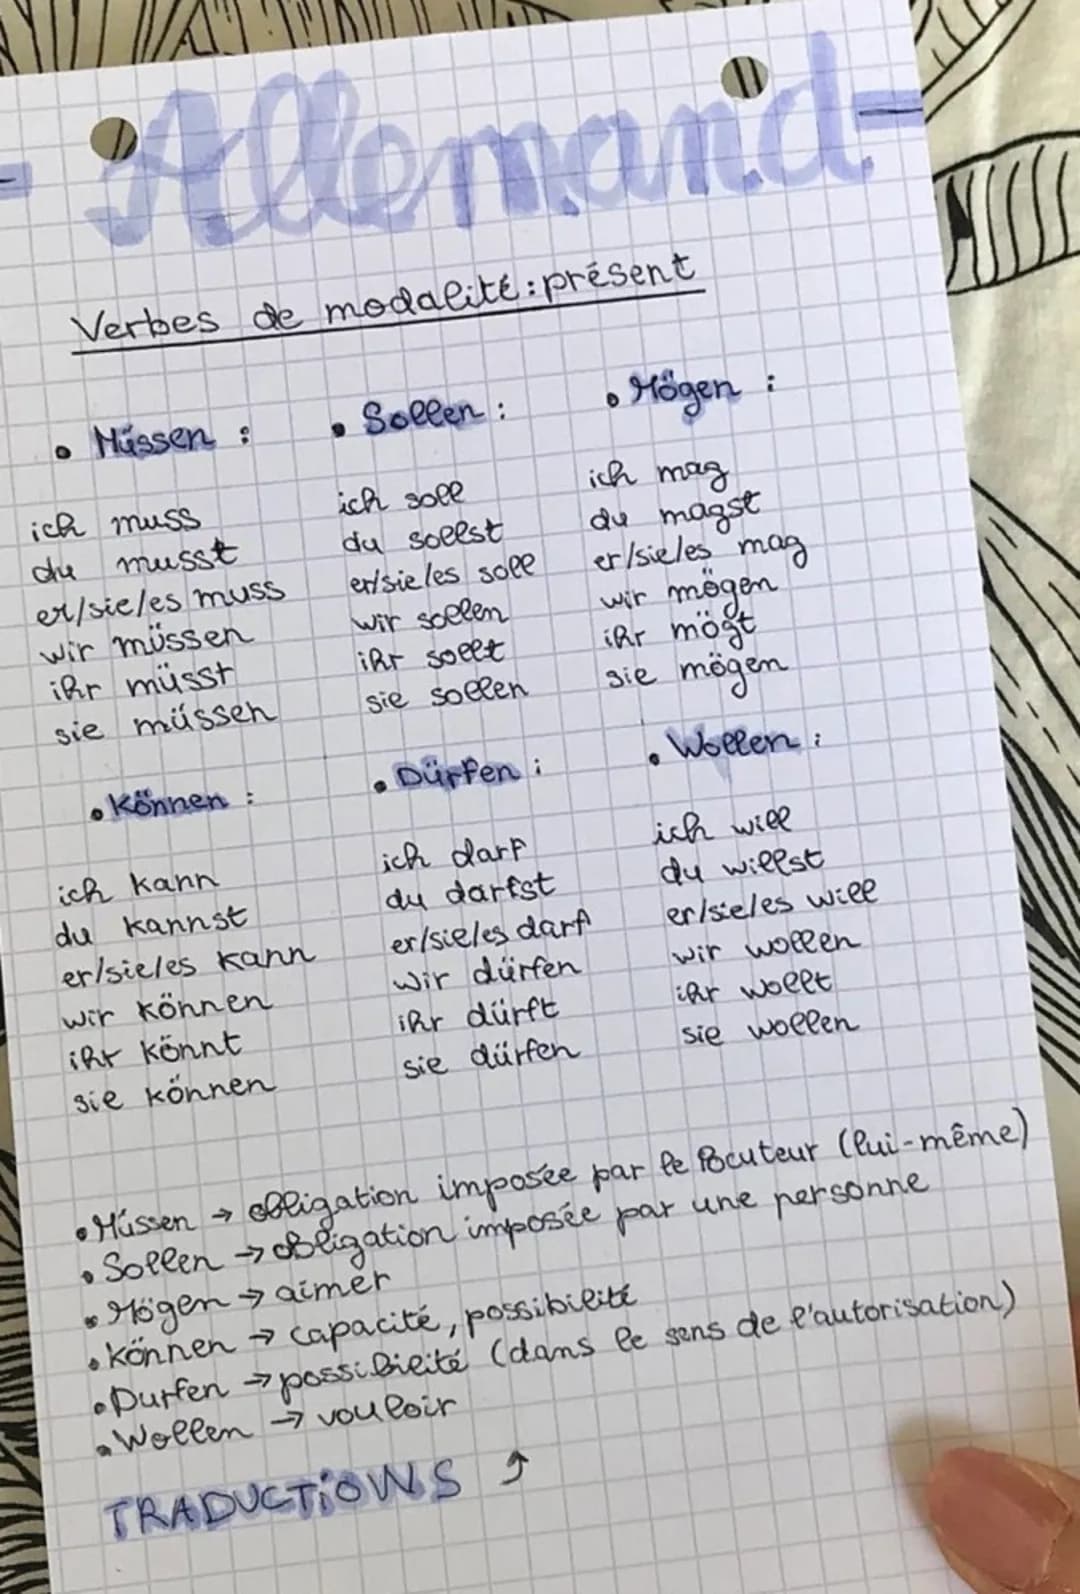 - Allemand -
Verbes de modalité : présent
• Müssen :
ich muss
du musst
er/sie/es muss
wir müssen
ihr müsst
sie müssen
• Sollen :
ich soll
du sollst
er/sie/es soll
wir sollen
ihr sollt
sie sollen
• Mögen :
ich mag
du magst
er/sie/es mag
wir mögen
ihr mögt
sie mögen
• Können :
ich kann
du kannst
er/sie/es kann
wir können
ihr könnt
sie können
• Dürfen :
ich darf
du darfst
er/sie/es darf
wir dürfen
ihr dürft
sie dürfen
• Wollen :
ich will
du willst
er/sie/es will
wir wollen
ihr wollt
sie wollen
• Müssen → obligation imposée par le locuteur (lui-même)
• Sollen → obligation imposée par une personne
• Mögen → aimer
• Können → capacité, possibilité
• Durfen → possibilité (dans le sens de l'autorisation)
• Wollen → vouloir
TRADUCTIONS ↑